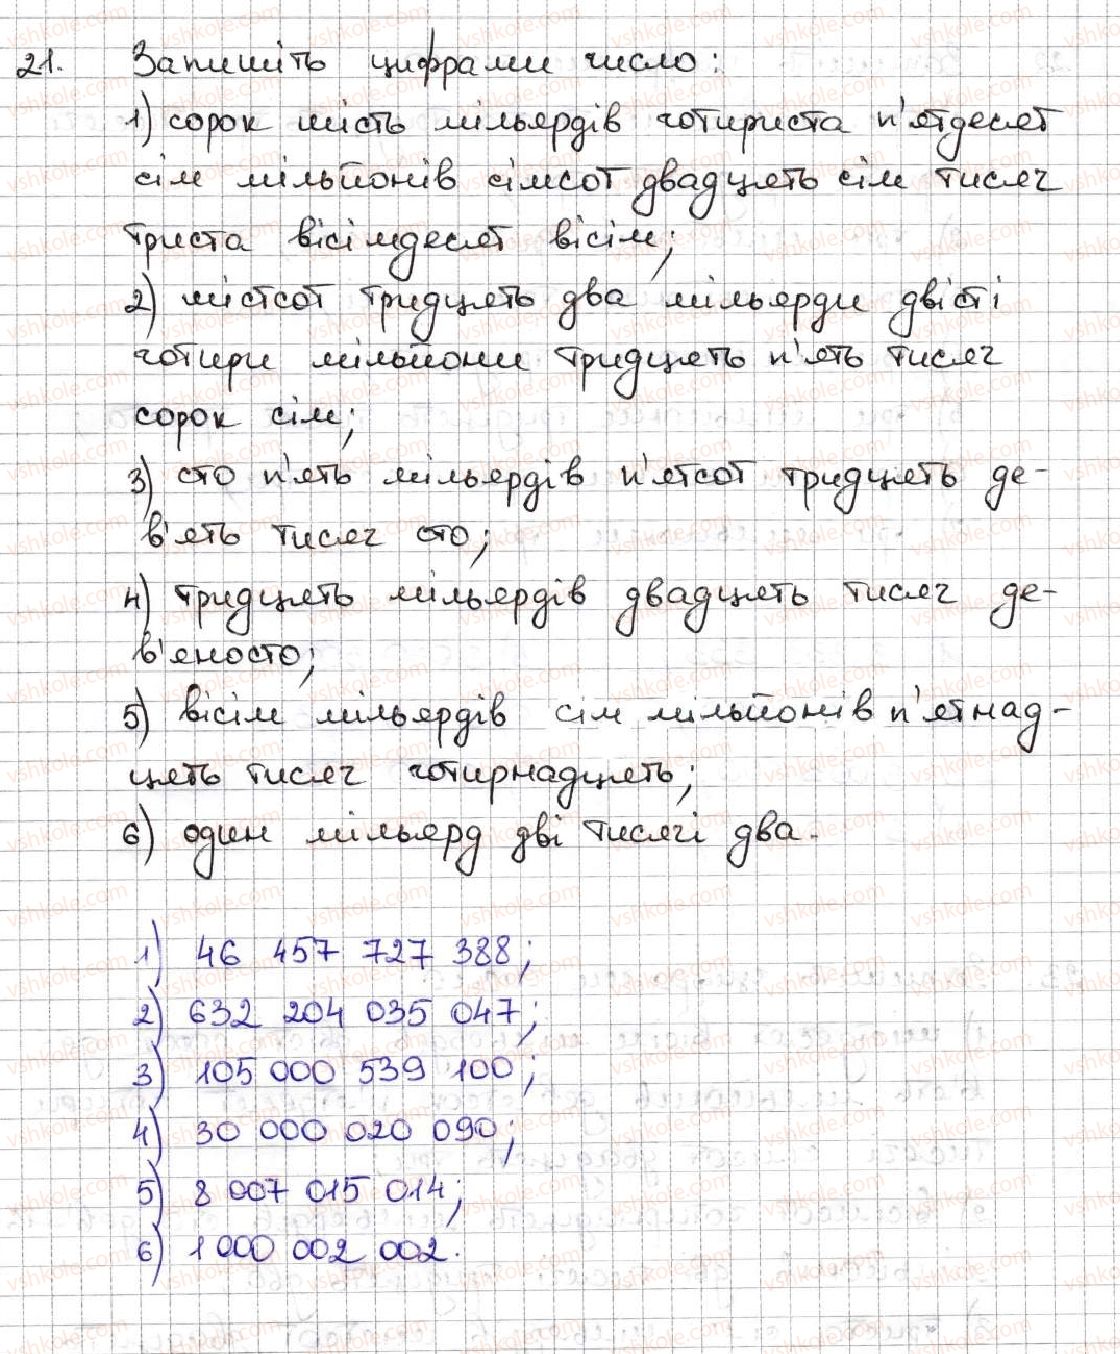 21. Запишіть цифрами число:
1) сорок шість мільярдів чотириста п'ятдесят
сім мільйонів сімсот двадцять сім тисяч
триста вісімдесят вісім;
2) шістсот тридцять два мільярди двісті
чотири мільйони тридцять п'ять тисяч
сорок сім;
3) сто п'ять мільярдів п'ятсот тридцять де-
в'ять тисяч сто;
4) тридцять мільярдів двадцять тисяч де-
в'яносто;
5) вісім мільярдів сім мільйонів п'ятнад-
цять тисяч чотирнадцять;
6) один мільярд дві тисячі два.
1) 46 457 727 388;
2) 632 204 035 047;
3) 105 000 539 100;
4) 30 000 020 090;
5) 8 007 015 014;
6) 1 000 002 002.
vshkole.com